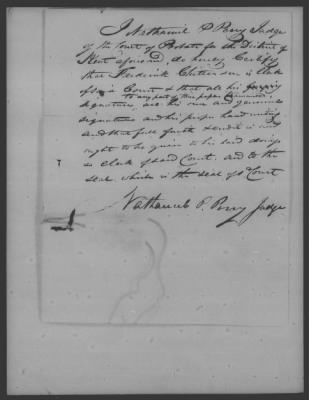 I Nathaniel P Perry Judge
of the Court of Probate for the District of
Kent aforesaid, do hereby Certify
that Frederick is Clerk
of said Court & that all his
to any part of the papers
signatures, are his own and genuine
signatures and his proper hand writing
and that full faith & credit is and
ought to be given to his said doings
as clerk of said Court. and to the
seal which is the seal of Court
Nathaniel P. Perry Judge